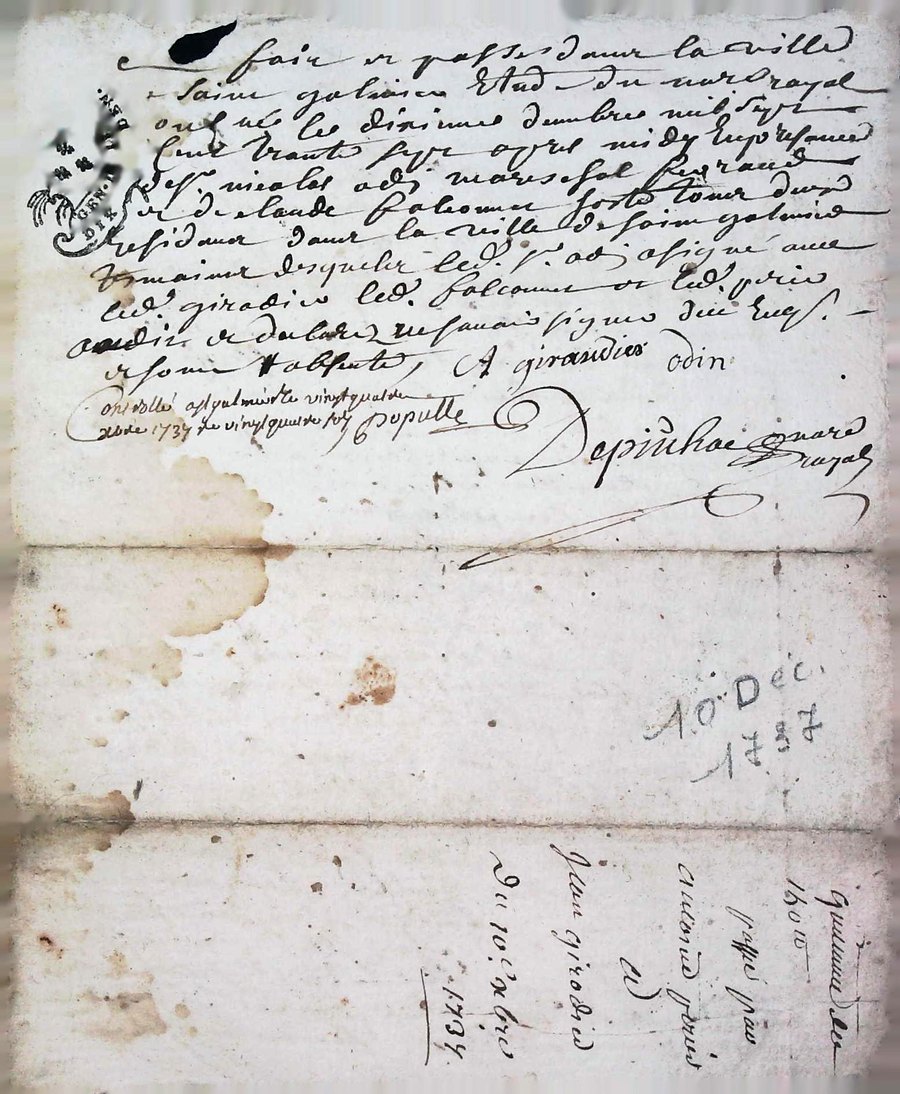 fait et passé dans la ville
de Saint galmier Etude du no.re royal
le dixieme decembre mil sept
cent trante sept apres midy En presance
de s.r nicolas odi mareschal ferrand
et de claude falconnet hoste tous deux
residans dans la ville de saint galmier
temoins desquels led. s.r odi a signé avec
led. giraudier led. falconnet et led. perier
ne scavoir signer de ce Enq.s
et sommé
A giraudier odin
Controllé a s.t galmier le vingt quatre
xbre 1737 Re vingt quatre sols Populle
Depinhac no.re
royal
GEN. D
DIX
10 Dec.
1737
quittance de
passé par
antoine perier
a
Jean girodier
Du 10.e xbre
1737